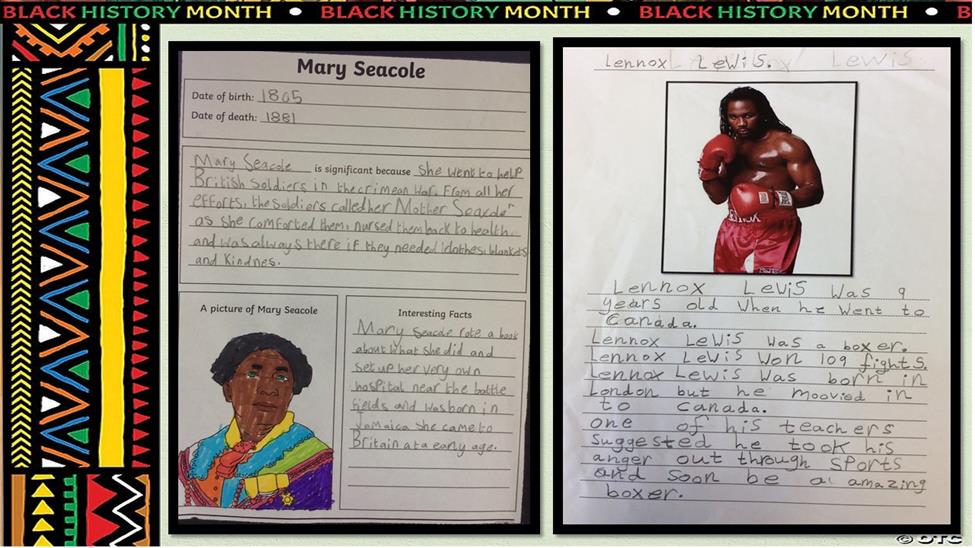 BLACK HISTORY MONTH • BLACK HISTORY MONTH • BLACK HISTORY MONTH • B
Mary Seacole
Date of birth: 1805
Date of death: 1881
Mary Seacole is significant because she went to help
British soldiers in the crimean War. From all her
efforts, the soldiers called her Mother Seacole"
as she comforted them, nursed them back to health,
and was always there if they needed clothes, blankets
and kindnes.
A picture of Mary Seacole
Interesting Facts
Mary seacole rote a book
about what she did and
set up her very own
hospital near the battle
fields and was born in
Jamaica she came to
Britain at a early age.
Lennox Lewis. Lewis
Lennox Lewis was 9
years old when he went to
Canada.
Lennox Lewis was a boxer.
Lennox Lewis won 109 fights.
Lennox Lewis was born in
London but he moovied in
to Canada.
one of his teachers
suggested he took his
anger out through sports
and soon be a amazing
boxer.
© OTC